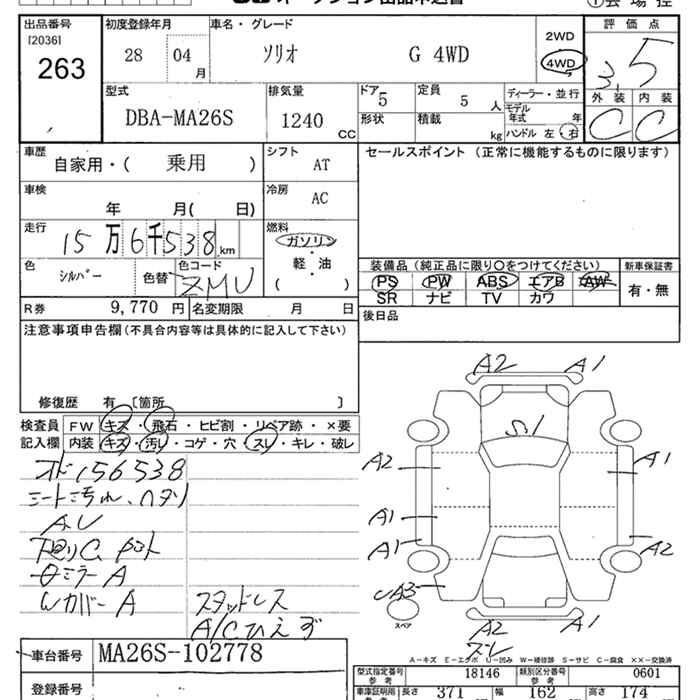 出品番号 初度登録年月 車名・グレード 評価点
[2036]
263
28 04 月 ソリオ G 4WD 2WD 4WD 3.5
外装 内装
C C
型式 排気量 ドア 定員 ディーラー・並行
DBA-MA26S 1240 cc 5 5 人 モデル年式 年
形状 積載 kg ハンドル 左・右
車歴 自家用・( 乗用 ) シフト AT セールスポイント (正常に機能するものに限ります)
車検 年 月( 日) 冷房 AC
走行 15万6千538 km 燃料 ガソリン
軽・油
( )
色 シルバー 色替 色コード ZMU
装備品 (純正品に限り○をつけてください) 新車保証書
PS PW ABS エアB AW 有・無
SR ナビ TV カワ
R券 9,770 円 名変期限 月 日 後日品
注意事項申告欄 (不具合内容等は具体的に記入して下さい)
修復歴 有 〔箇所 〕
検査員 FW キズ・飛石・ヒビ割・リペア跡・×要
記入欄 内装 キズ・汚レ・コゲ・穴・スレ・キレ・破レ
156538
シート汚れ、ヘタリ
ミラーA
WカバーA スタッドレス
A/Cひえず
A2 A1
S.1
A2 A1
A1
A1 A2
A3
スペア
A2 A1
スレ
車台番号 MA26S-102778
登録番号
A-キズ E-エクボ U-凹み W-補修跡 S-サビ C-腐食 ××-交換済
型式指定番号 参考 18146 類別区分番号 参考 0601
車庫証明用 長さ 371 幅 162 高さ 174